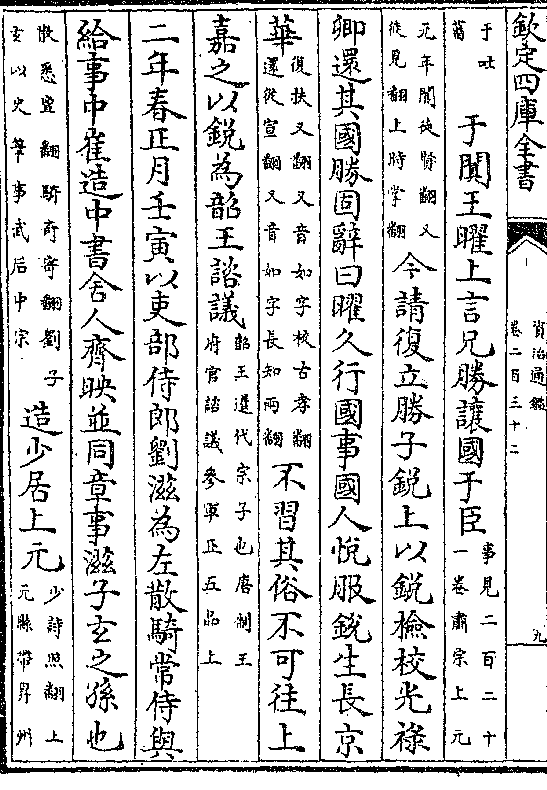 欽定四庫全書
資治通鑑
卷二百三十二
九
于吐
蕃
于闐王曜上言兄勝讓國于臣
事見二百二十
一卷肅宗上元
元年闐徒賢翻又
徒見翻上時掌翻
今請復立勝子鋭上以鋭檢校光祿
卿還其國勝固辭曰曜久行國事國人悅服鋭生長京
華
復扶又翻又音如字校古孝翻
還從宣翻又音如字長知兩翻
不習其俗不可往上
嘉之以鋭為韶王諮議
韶王暹代宗子也唐制王
府官諮議參軍正五品上
二年春正月壬寅以吏部侍郎劉滋為左散騎常侍與
給事中崔造中書舍人齊映並同章事滋子玄之孫也
散悉亶翻騎奇寄翻劉子
玄以史筆事武后中宗
造少居上元
少詩照翻上
元縣帶昇州